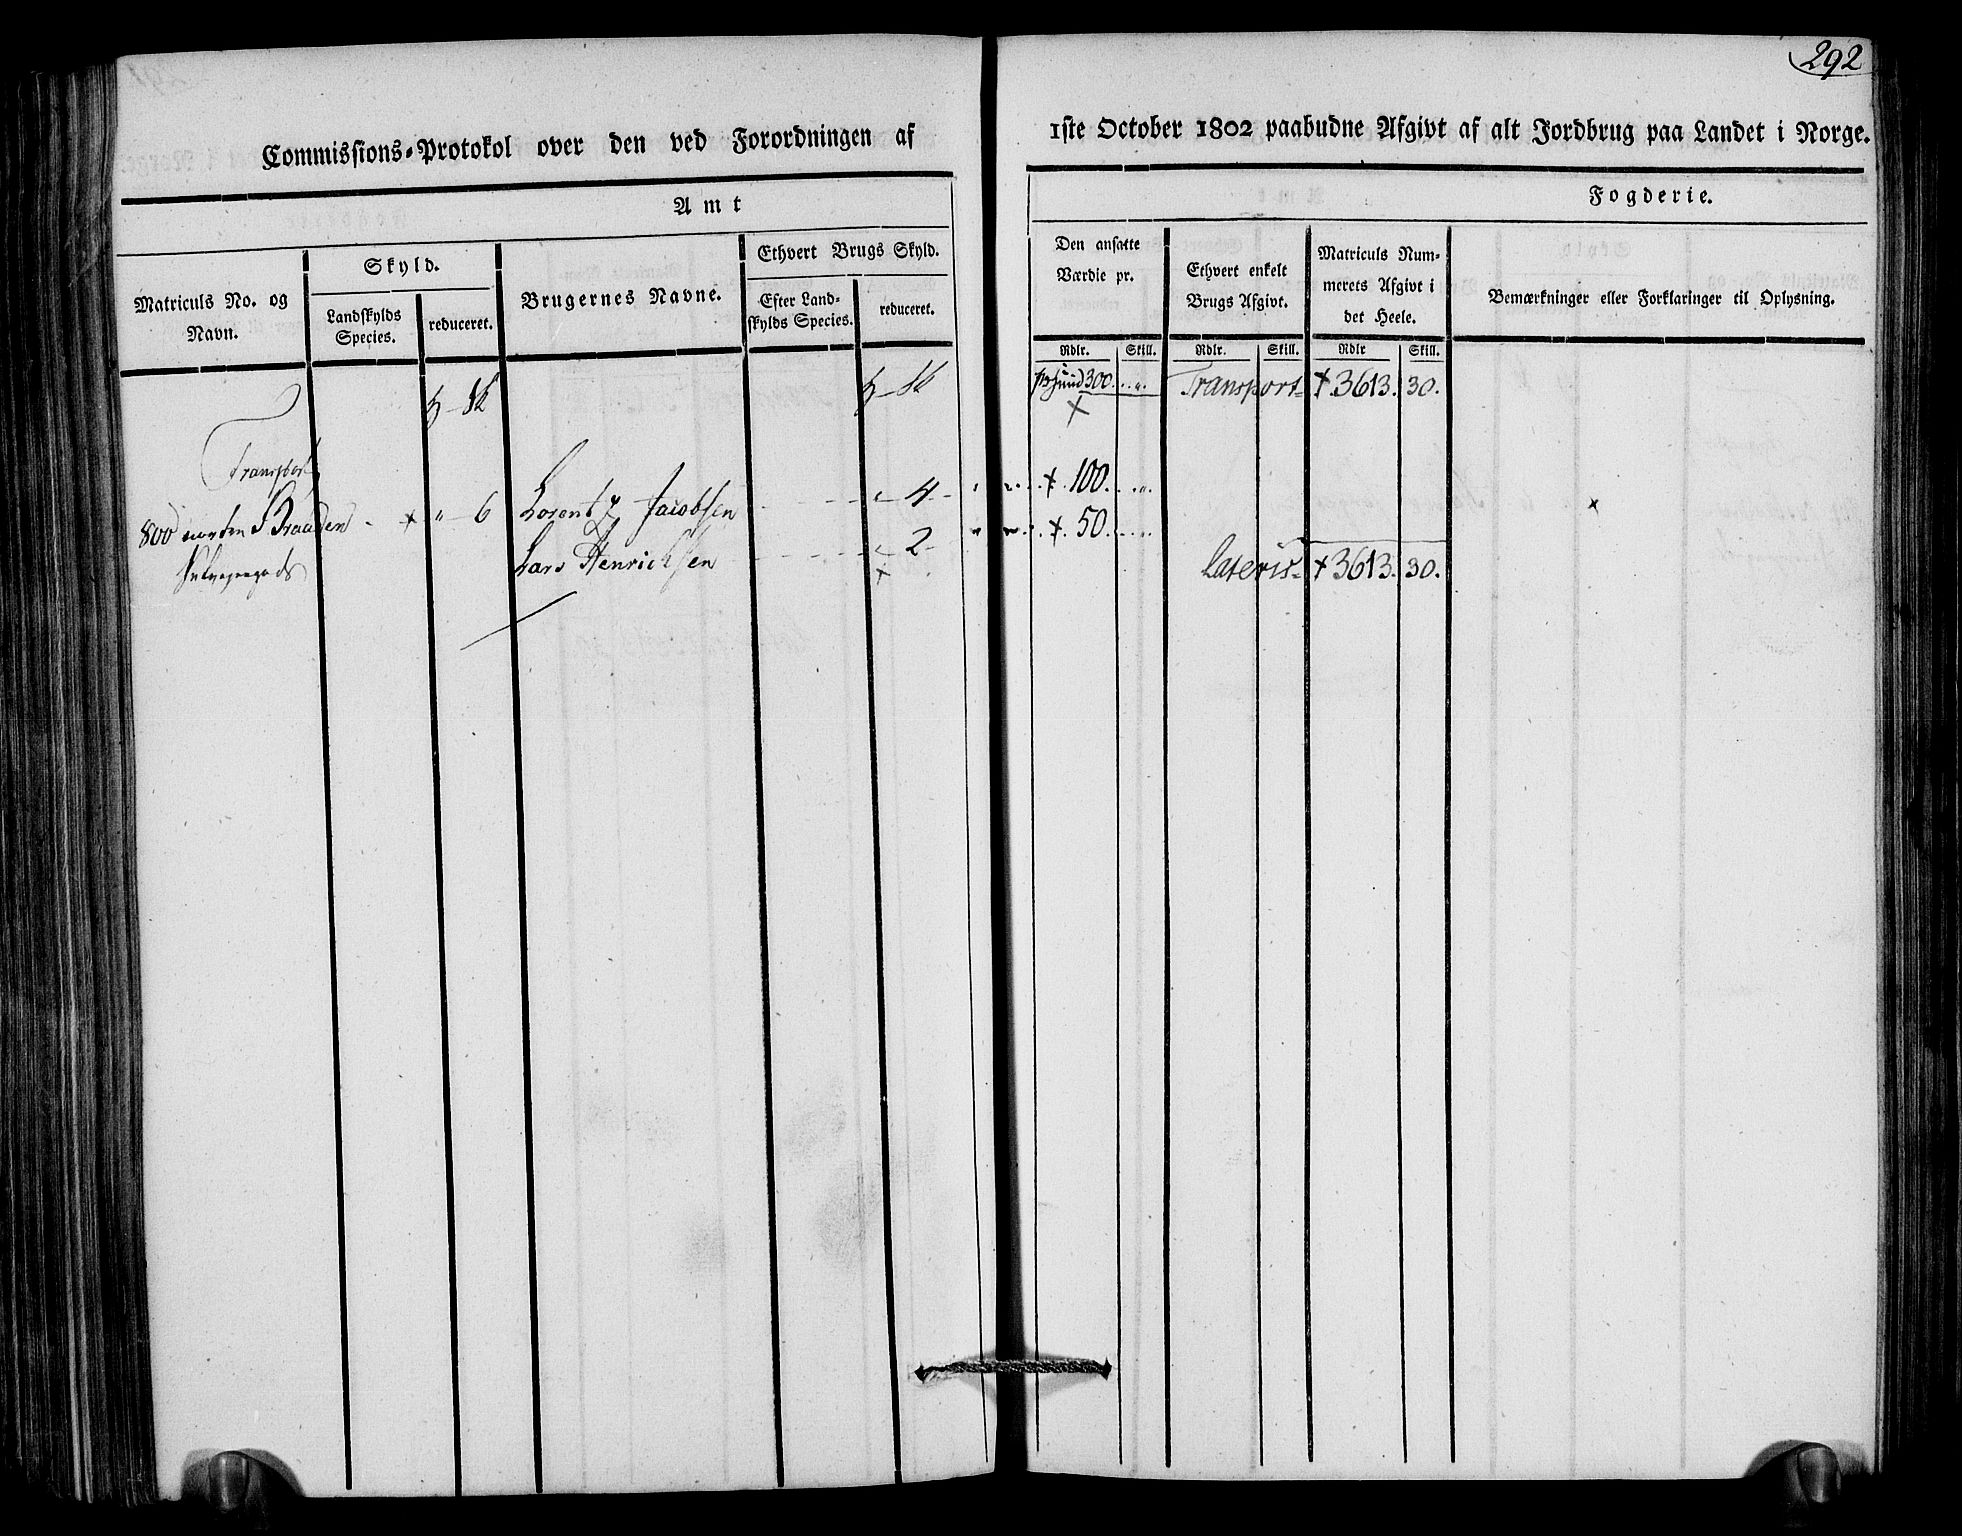 292
Commissions-Protokol over den ved Forordningen af
1ste October 1802 paabudne Afgivt af alt Jordbrug paa Landet i Norge.
Amt
Fogderie.
Matriculs No. og Navn.
Skyld.
Landskylds Species.
reduceret.
Brugernes Navne.
Ethvert Brugs Skyld.
Efter Landskylds Species.
reduceret.
Den ansatte Værdie pr.
Ethvert enkelt Brugs Afgivt.
Matriculs Nummerets Afgivt i det Heele.
Bemærkninger eller Forklaringer til Oplysning.
Rdlr. Skill. Rdlr. Skill. Rdlr Skill.
300. Transport 3613. 30.
Transport
800 6 Lorentz Jacobsen 4 100.
Lars Henrichsen 2 50.
Lateris 3613. 30.